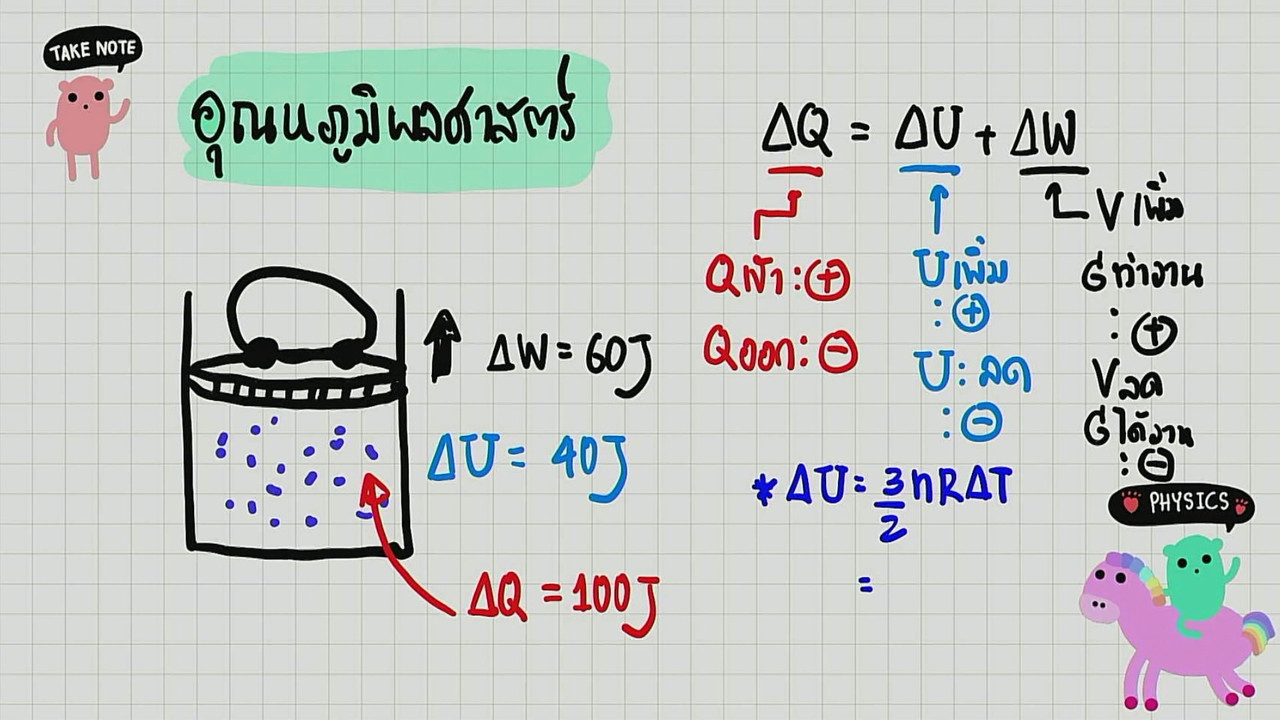 TAKE NOTE
อุณหภูมิพลศาสตร์
ΔQ = ΔU + ΔW
V เพิ่ม
Qเข้า : ⊕
Uเพิ่ม
: ⊕
Gทำงาน
: ⊕
Qออก : ⊖
U : ลด
: ⊖
Vลด
Gได้งาน
: ⊖
ΔW = 60J
ΔU = 40J
ΔQ = 100J
* ΔU = 3/2 nRΔT
=
PHYSICS